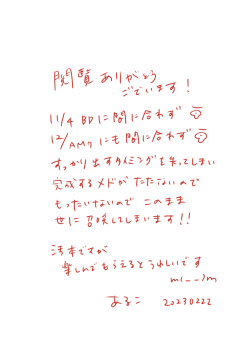 閲覧ありがとう
ございます!
11/4 BDに間に合わず
12/ にも間に合わず
すっかり出すタイミングを失ってしまい
完成するメドがたたないので
もったいないので このまま
世に召喚してしまいます!!
ですが
楽しんでもらえるとうれしいです
m(__)m
20230222